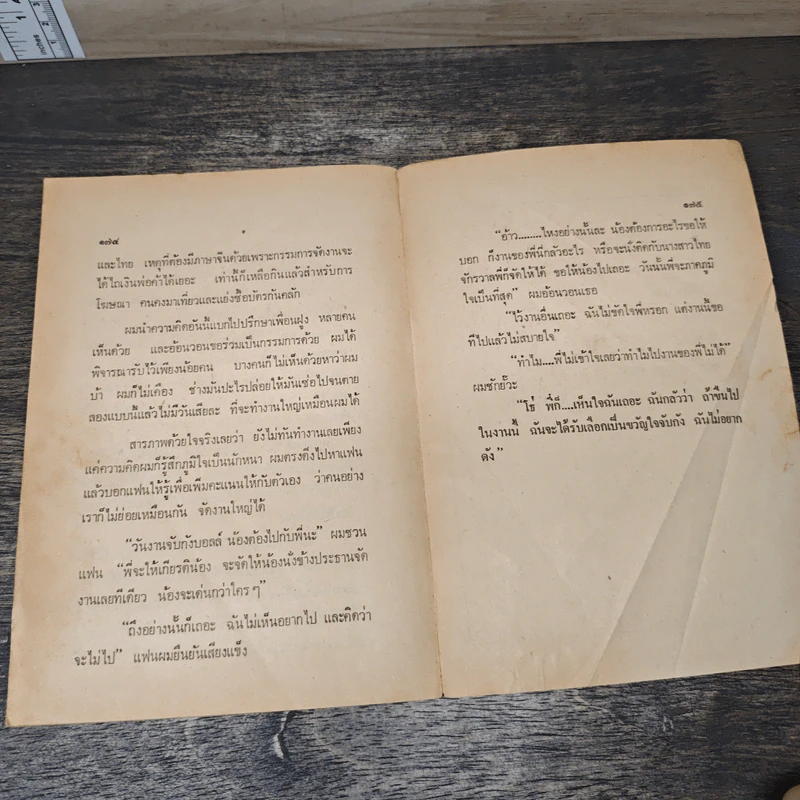 ๑๗๔
และไทย เหตุที่ต้องมีภาษาจีนด้วยเพราะกรรมการจัดงานจะ
ได้ไถเงินพ่อค้าได้เยอะ เท่านี้ก็เหลือกินแล้วสำหรับการ
โฆษณา คนคงมาเที่ยวและแย่งซื้อบัตรกันคลั่ก
ผมนำความคิดอันนี้แบกไปปรึกษาเพื่อนฝูง หลายคน
เห็นด้วย และอ้อนวอนขอร่วมเป็นกรรมการด้วย ผมได้
พิจารณารับไว้เพียงน้อยคน บางคนก็ไม่เห็นด้วยหาว่าผม
บ้า ผมก็ไม่เคือง ช่างมันปะไรปล่อยให้มันเซ่อไปจนตาย
ลองแบบนี้แล้วไม่มีวันเสียละ ที่จะทำงานใหญ่เหมือนผมได้
สารภาพด้วยใจจริงเลยว่า ยังไม่ทันทำงานเลยเพียง
แค่ความคิดผมก็รู้สึกภูมิใจเป็นนักหนา ผมตรงดิ่งไปหาแฟน
แล้วบอกแฟนให้รู้เพื่อเพิ่มคะแนนให้กับตัวเอง ว่าคนอย่าง
เราก็ไม่ย่อยเหมือนกัน จัดงานใหญ่ได้
“วันงานจับกังบอลล์ น้องต้องไปกับพี่นะ” ผมชวน
แฟน “พี่จะให้เกียรติน้อง จะจัดให้น้องนั่งข้างประธานจัด
งานเลยทีเดียว น้องจะเด่นกว่าใคร ๆ”
“ถึงอย่างนั้นก็เถอะ ฉันไม่เห็นอยากไป และคิดว่า
จะไม่ไป” แฟนผมยืนยันเสียงแข็ง
๑๗๕
“อ้าว........ไหงอย่างนั้นละ น้องต้องการอะไรขอให้
บอก ก็งานของพี่นึกลัวอะไร หรือจะนั่งติดกับนางสาวไทย
จักรวาลพี่ก็จัดให้ได้ ขอให้น้องไปเถอะ วันนั้นพี่จะภาคภูมิ
ใจเป็นที่สุด” ผมอ้อนวอนเธอ
“ไว้งานอื่นเถอะ ฉันไม่ขัดใจพี่หรอก แต่งานนี้ขอ
ทีไปแล้วไม่สบายใจ”
“ทำไม....พี่ไม่เข้าใจเลยว่าทำไมไปงานของพี่ไม่ได้”
ผมชักยั๊วะ
“โธ่ พี่ก็....เห็นใจฉันเถอะ ฉันกลัวว่า ถ้าขืนไป
ในงานนี้ ฉันจะได้รับเลือกเป็นขวัญใจจับกัง ฉันไม่อยาก
ดัง”
inches